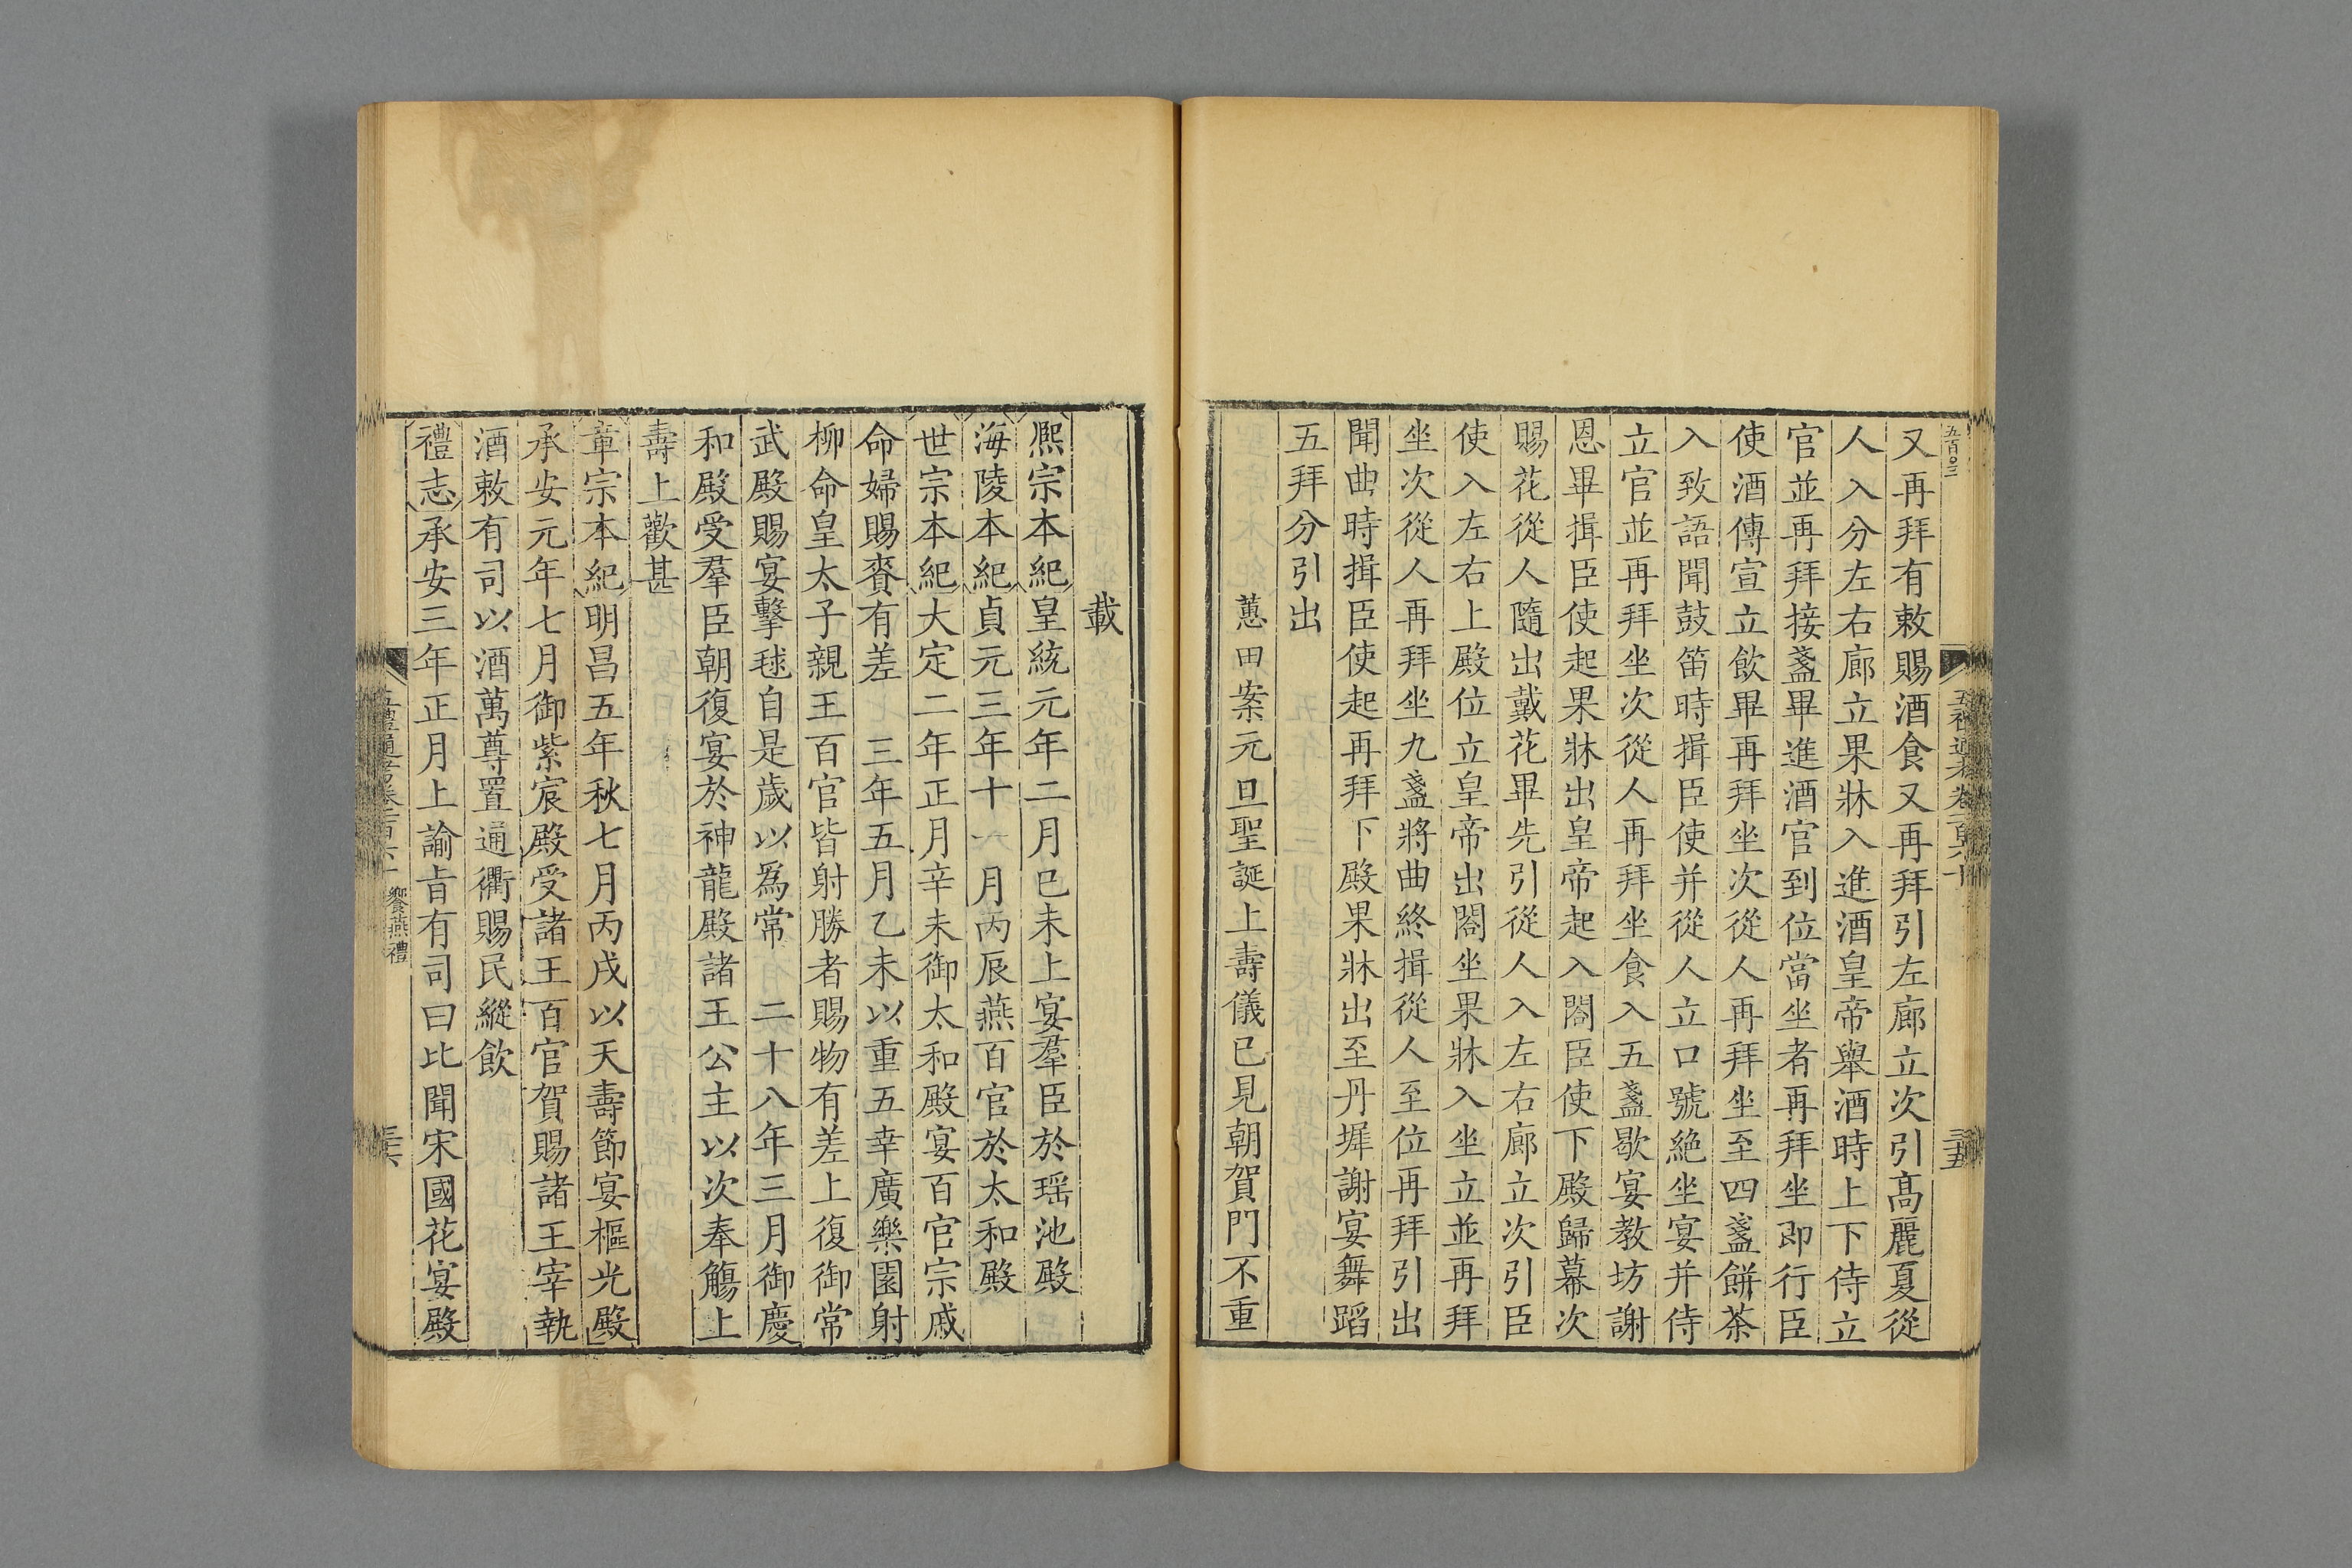 五百〇三
又再拜有敕賜酒食又再拜引左廊立次引高麗夏從
人入分左右廊立果牀入進酒皇帝舉酒時上下侍立
官並再拜接盞畢進酒官到位當坐者再拜坐即行臣
使酒傳宣立飲畢再拜坐次從人再拜坐至四盞餅茶
入致語聞鼓笛時揖臣使并從人立口號絶坐宴并侍
立官並再拜坐次從人再拜坐食入五盞歇宴教坊謝
恩畢揖臣使起果牀出皇帝起入閤臣使下殿歸幕次
賜花從人隨出戴花畢先引從人入左右廊立次引臣
使入左右上殿位立皇帝出閤坐果牀入坐立並再拜
坐次從人再拜坐九盞將曲終揖從人至位再拜引出
聞曲時揖臣使起再拜下殿果牀出至丹墀謝宴舞蹈
五拜分引出
蕙田案元旦聖誕上壽儀已見朝賀門不重
載
熈宗本紀皇統元年二月巳未上宴羣臣於瑶池殿
海陵本紀貞元三年十一月丙辰燕百官於太和殿
世宗本紀大定二年正月辛未御太和殿宴百官宗戚
命婦賜賚有差　三年五月乙未以重五幸廣樂園射
柳命皇太子親王百官皆射勝者賜物有差上復御常
武殿賜宴擊毬自是歲以爲常　二十八年三月御慶
和殿受羣臣朝復宴於神龍殿諸王公主以次奉觴上
壽上歡甚
章宗本紀明昌五年秋七月丙戌以天壽節宴樞光殿
承安元年七月御紫宸殿受諸王百官賀賜諸王宰執
酒敕有司以酒萬尊置通衢賜民縱飲
禮志承安三年正月上諭旨有司曰比聞宋國花宴殿
饗燕禮